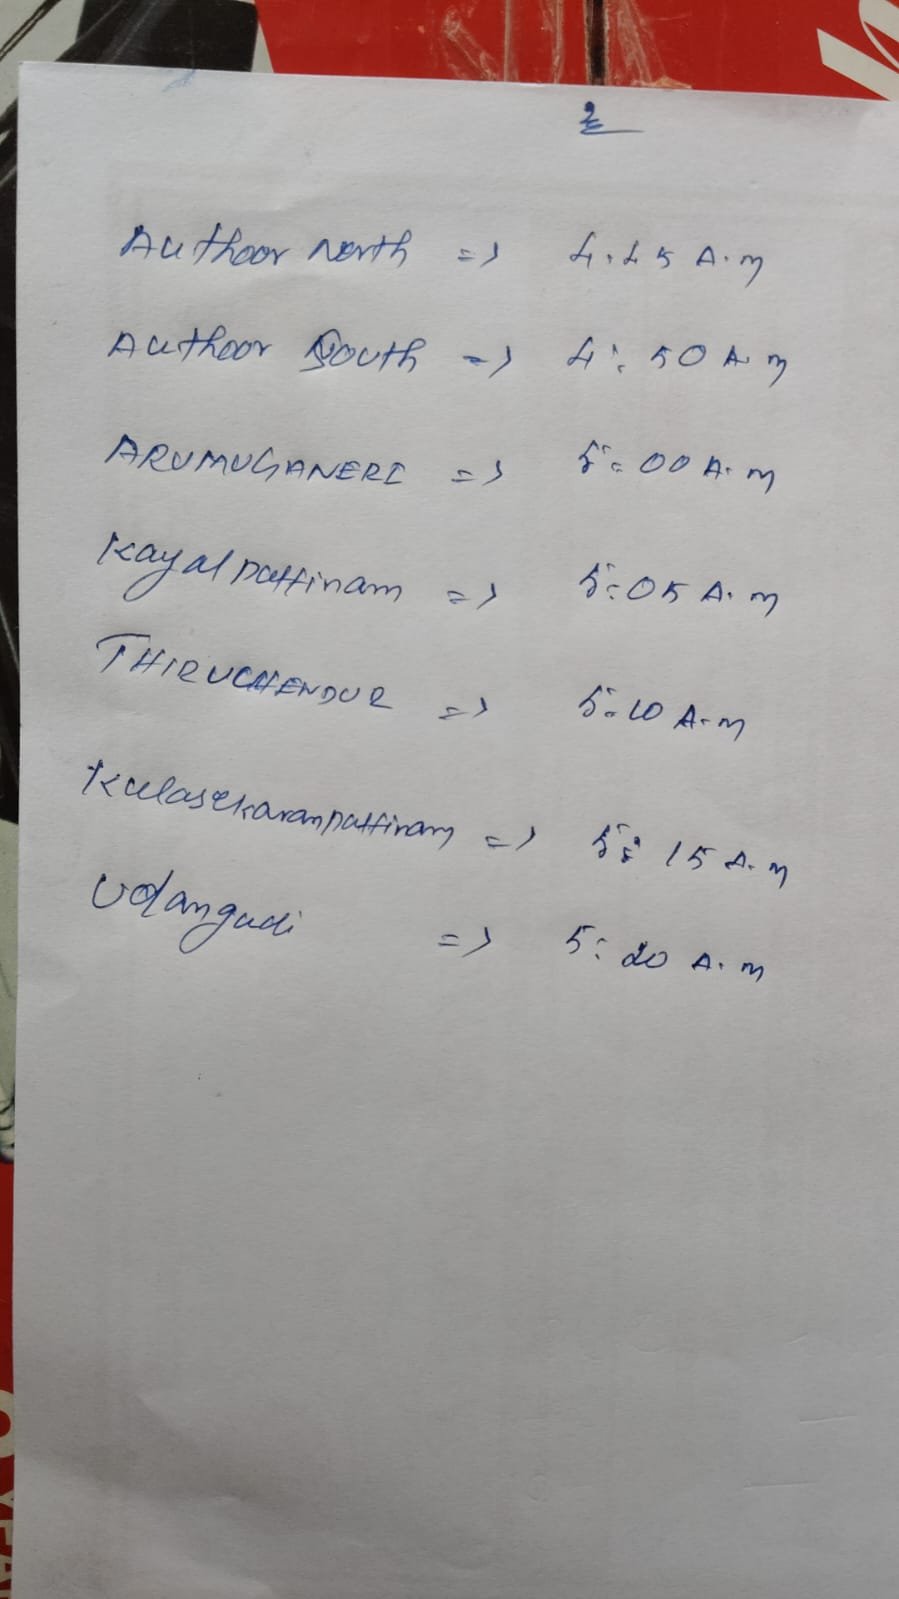 2
Authoor North => 4.45 A.m
Authoor South => 4:50 A.m
ARUMUGANERI => 5:00 A.m
Kayalpattinam => 5:05 A.m
THIRUCHENDUR => 5:10 A.m
Kulasekaranpattinam => 5:15 A.m
Udangudi => 5:20 A.m